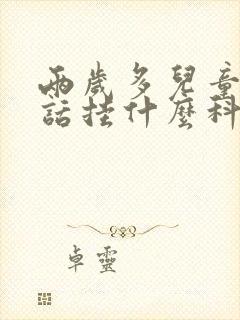 兩歲多兒童
話挂什麼科
卓靈